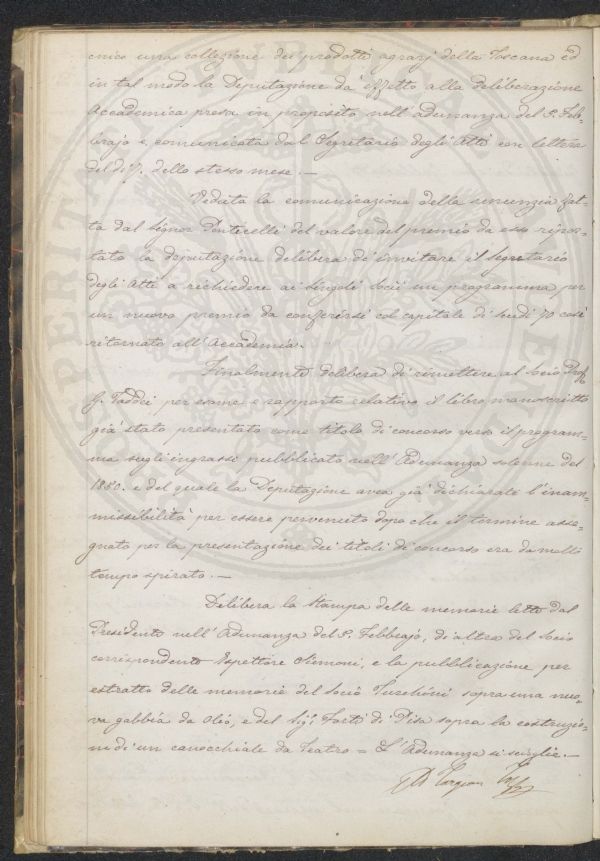 cnico una collezione dei prodotti agrarj della Toscana ed
in tal modo la Deputazione dà effetto alla deliberazione
Accademica presa in proposito nell'adunanza del 5. Feb=
brajo e comunicata dal Segretario degli Atti con lettera
del dì 7. dello stesso mese. —
Veduta la comunicazione della renunzia fat=
ta dal Signor Ponticelli del valore del premio da esso ripor=
tato la deputazione delibera di invitare il Segretario
degli Atti a richiedere ai singoli Socii un programma per
un nuovo premio da conferirsi col capitale di scudi 70 così
ritornato all'Accademia.
Finalmente delibera di rimettere al Socio Prof.
G. Taddei per esame e rapporto relativo il libro manoscritto
già stato presentato come titolo di concorso verso il program=
ma sugli ingrassi pubblicato nell'Adunanza solenne del
1850. e del quale la Deputazione avea già dichiarato l'inam=
missibilità per essere pervenuto dopo che il termine asse=
gnato per la presentazione dei titoli di concorso era da molto
tempo spirato. —
Delibera la stampa delle memorie lette dal
Presidente nell'Adunanza del 5. Febbrajo, di altra del Socio
corrispondente Ispettore Siemoni, e la pubblicazione per
estratto delle memorie del Socio Turchini sopra una nuo=
va gabbia da Olio, e del Sig. Forti di Pisa sopra la costruzio=
ni di un canocchiale da Teatro = L'Adunanza si scioglie. —